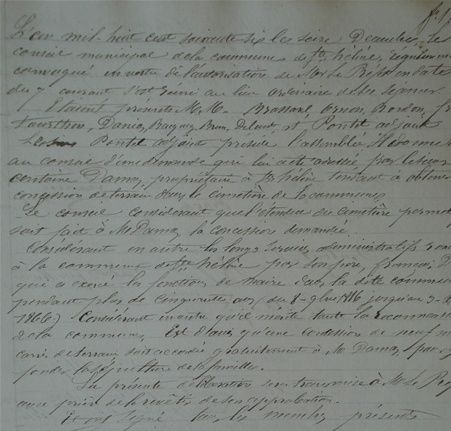 L'an mil huit cent soixante six le seize Decembre, le
conseil municipal de la commune de Ste hélène, régulièrement
convoqué en vertu de l'autorisation de Mr le Préfet en date
du 7 courant s'est réuni au lieu ordinaire de ses séances
Etaient présents M.M. Brassant, Bordon,
et Pontet adjoint
Pontet adjoint préside l'assemblée. Il donne
au conseil d'une demande qui lui a été adressée par le sieur
Damas, propriétaire à Ste hélène tendant à obtenir
concession de terrain dans le cimetière de la commune
Le conseil considérant que l'étendue du cimetière permet
soit fait à Mr Damas la concession demandée.
Considérant en outre les longs services administratifs
à la commune de Ste hélène par son père, francois
qui a exercé les fonctions de Maire dans la dite commune
pendant plus de cinquante ans (du 8 9bre 1816 jusqu'au
1866) Considérant en outre qu'il mérite toute la reconnaissance
de la commune, Est d'avis qu'une concession de neuf
carrés de terrain soit accordée gratuitement à Mr Damas, pour y
fonder la sépulture de sa famille.
La présente délibération sera transmise à Mr le Préfet
avec prière de la revêtir de son approbation.
Et ont signé tous les membres présents